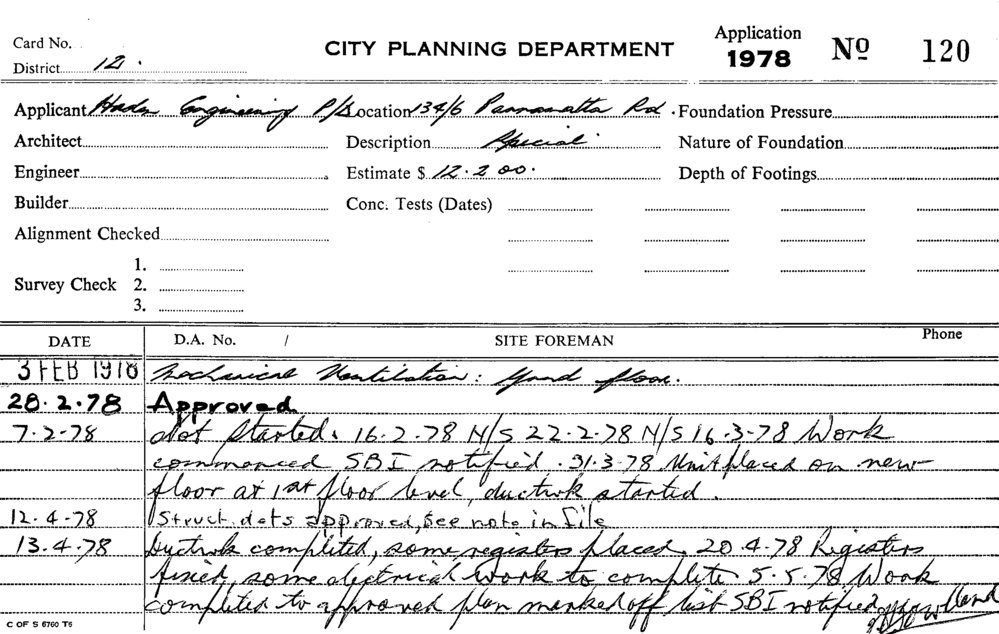 Card No.
CITY PLANNING DEPARTMENT
Application 1978 Nº 120
District 12.
Applicant Engineering P/L Location 134/6 Parramatta Rd. Foundation Pressure
Architect Description Special Nature of Foundation
Engineer Estimate $ 12.200. Depth of Footings
Builder Conc. Tests (Dates)
Alignment Checked
1.
Survey Check 2.
3.
DATE D.A. No. / SITE FOREMAN Phone
3 FEB 1978 Mechanical Ventilation: Grnd floor.
28.2.78 Approved
7-2-78 Not Started. 16.2.78 N/S 22-2-78 N/S 16.3-78 Work
commenced SBI notified. 31.3.78 Unit placed on new
floor at 1st floor level, ductwk started.
12.4.78 Struct. dets approved, see note in file
13.4.78 Ductwk completed, some registers placed. 20.4.78 Registers
fixed, some electrical work to complete. 5.5.78 Work
completed to approved plan marked off list SBI notified
C OF S 6760 T6